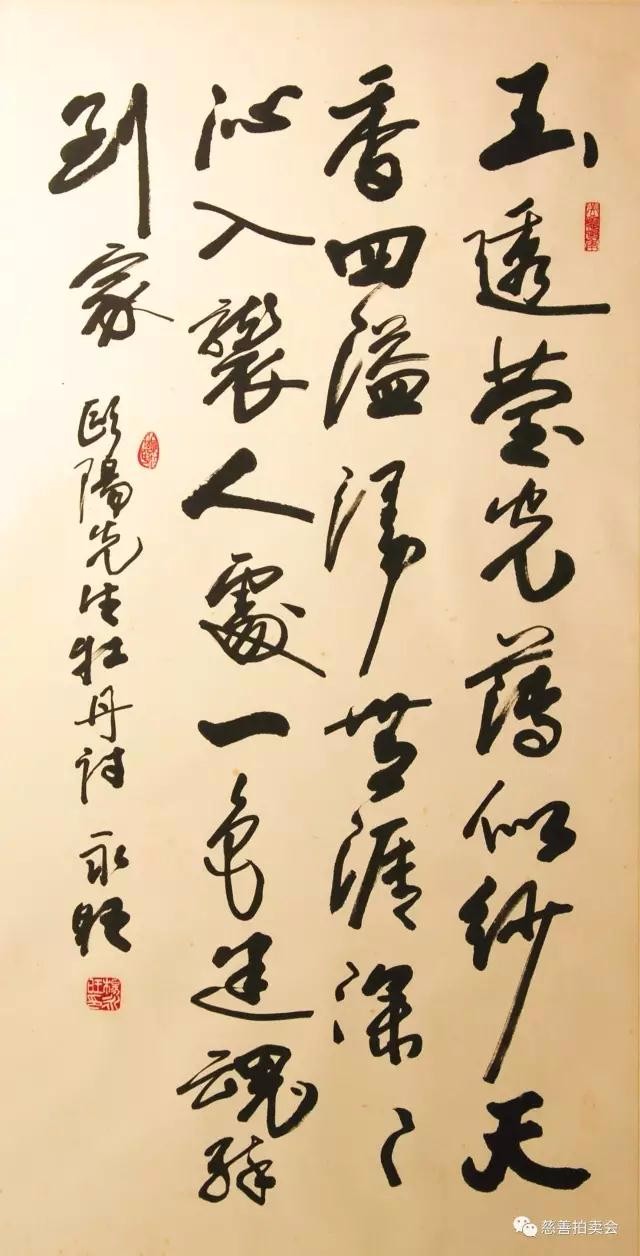 玉透瑩光薄似紗天
香四溢得無涯深〻
沁入襲人處一色迷魂醉
到家
歐陽先生牡丹詩 永旺
慈善拍卖会